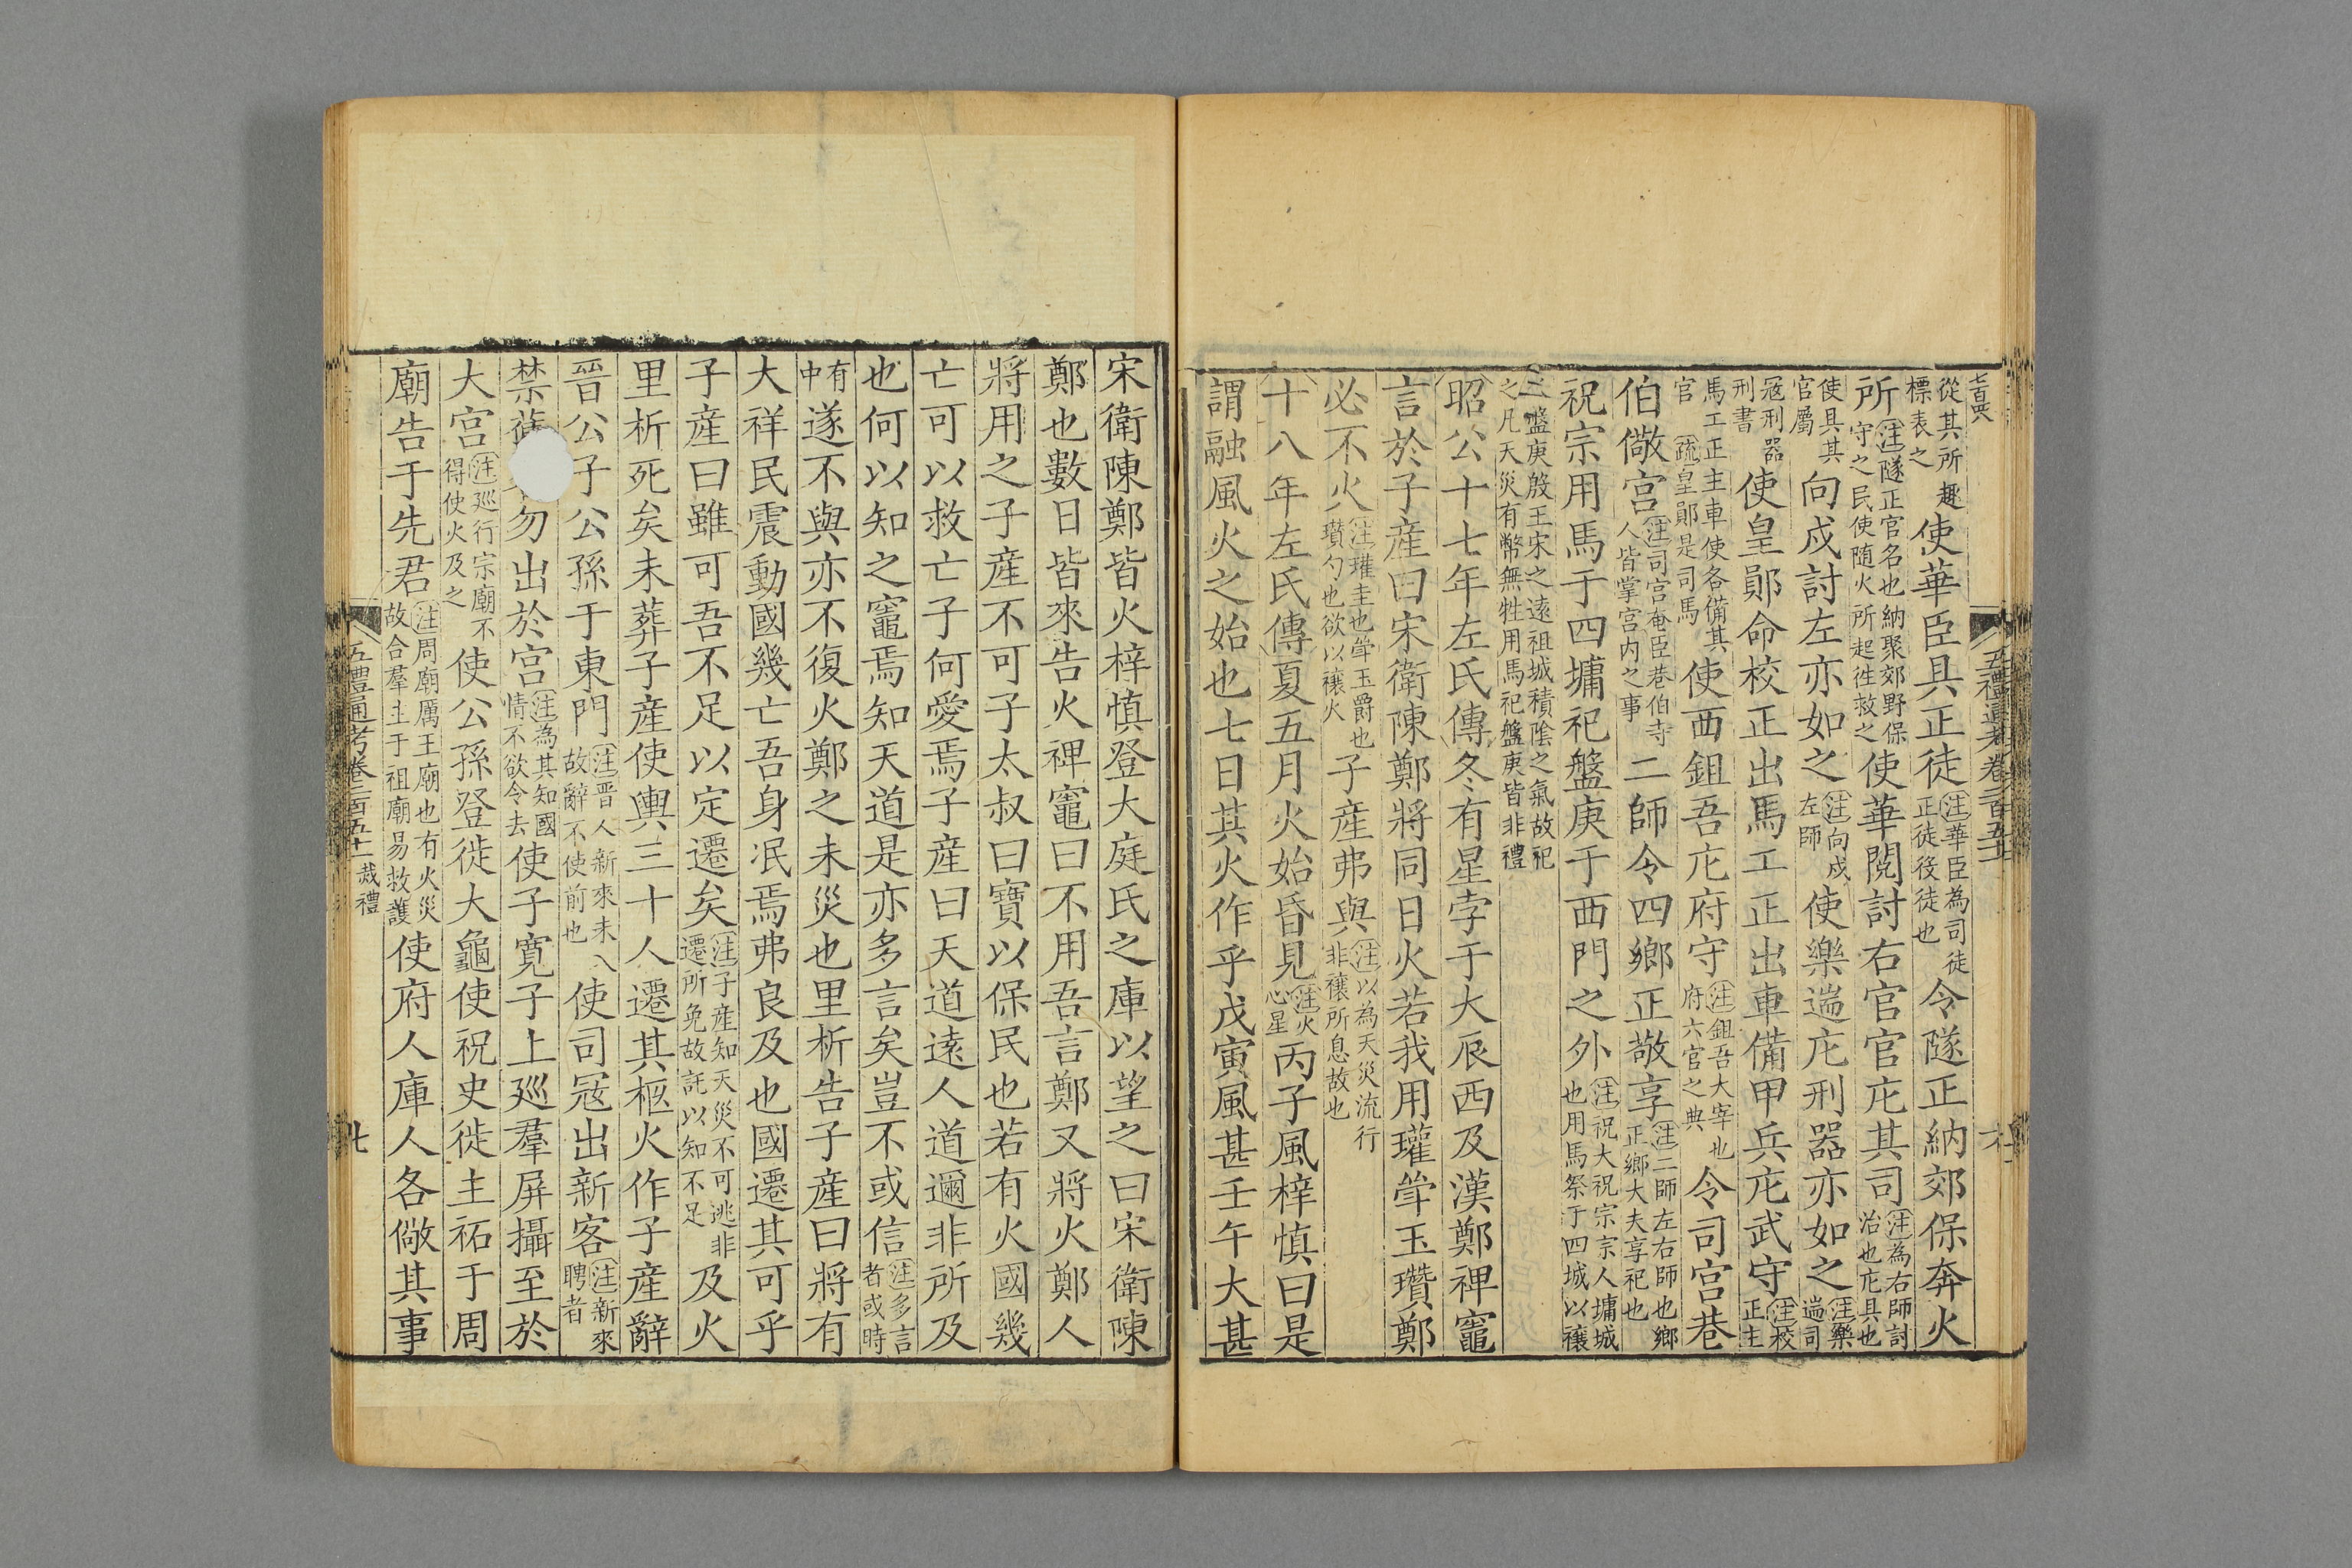 從其所趣標表之使華臣具正徒注華臣為司徒正徒役徒也令隧正納郊保奔火
所注隧正官名也納聚郊野保守之民使随火所起徃救之使華閱討右官官庀其司注為右師討治也庀具也
使具其官屬向戌討左亦如之注向戌左師使樂遄庀刑器亦如之注樂遄司
冦刑器刑書使皇鄖命校正出馬工正出車備甲兵庀武守注校正主
馬工正主車使各備其官疏皇鄖是司馬使西鉏吾庀府守注鉏吾大宰也府六官之典令司宮巷
伯儆宮注司宮奄臣巷伯寺人皆掌宮内之事二師令四鄉正敬享注二師左右師也鄉正鄉大夫享祀也
祝宗用馬于四墉祀盤庚于西門之外注祝大祝宗宗人墉城也用馬祭于四城以禳
盤庚殷王宋之遠祖城積陰之氣故祀之凡天災有幣無牲用馬祀盤庚皆非禮
昭公十七年左氏傳冬有星孛于大辰西及漢鄭禆竈
言於子產曰宋衛陳鄭將同日火若我用瓘斝玉瓚鄭
必不火注瓘圭也斝玉爵也瓚勺也欲以禳火子產弗與注以為天災流行非禳所息故也
十八年左氏傳夏五月火始昏見注火心星丙子風梓慎曰是
謂融風火之始也七日其火作乎戊寅風甚壬午大甚
五禮通考卷二百五十一
宋衛陳鄭皆火梓慎登大庭氏之庫以望之曰宋衛陳
鄭也數日皆來告火禆竈曰不用吾言鄭又將火鄭人
將用之子產不可子太叔曰寶以保民也若有火國幾
亡可以救亡子何愛焉子產曰天道遠人道邇非所及
也何以知之竈焉知天道是亦多言矣豈不或信注多言者或時
有中遂不與亦不復火鄭之未災也里析告子產曰將有
大祥民震動國幾亡吾身泯焉弗良及也國遷其可乎
子產曰雖可吾不足以定遷矣注子產知天災不可逃非遷所免故託以知不足及火
里析死矣未葬子產使輿三十人遷其柩火作子產辭
晉公子公孫于東門注晉人新來未入故辭不使前也使司冦出新客注新來聘者
禁舊勿出於宮注為其知國情不欲令去使子寛子上廵羣屏攝至於
大宮注廵行宗廟不得使火及之使公孫登徙大龜使祝史徙主祏于周
廟告于先君注周廟厲王廟也有火災故合羣主于祖廟易救護使府人庫人各儆其事
五禮通考卷二百五十一 烖禮 七